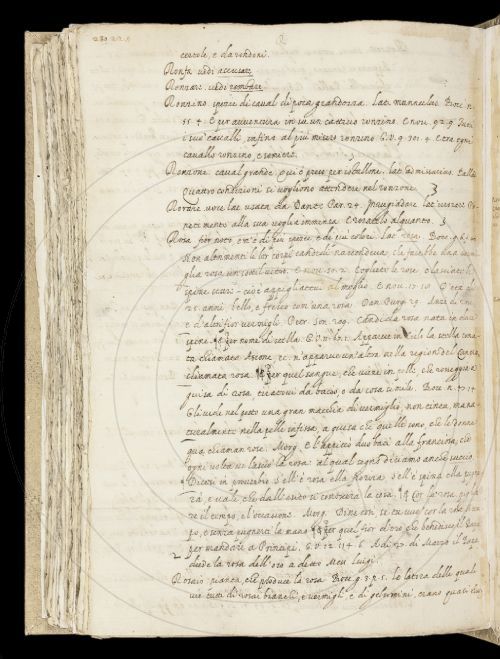 R
cestole, e da rondoni.
Ronfa vedi
Ronzare. vedi rombare.
Ronzino spezie di caval di poca grandezza. Lat. mannulus. Bocc. n.
55. 4. E per avventura in su un cattivo ronzino. E nov. 92. 9. Tutti
i suoi cavalli infino al più misero ronzino. G.V. 9. 301. 4. Era ogni
cavallo ronzino, e somiere.
Ronzone. caval grande. Qui è preso per istallone. Lat. admissarius.
Quattro condizioni si vogliono attendere nel ronzone.
voce lat. usata da Dante Par. 24.
alla sua voglia immensa
Rosa fior noto, e n'è di più spezie, e di più colori. Lat. rosa. Bocc. g. 6.
Non altrimenti il lor corpi candidi nascondeva, che farebbe una vermi
glia rosa un sottil vetro. E nov. 50. 2. Cogliete le rose, e lasciate le
spine stare: cioè appigliatevi al meglio. E nov. 15. 10. D'età di
25. anni, bello, e fresco com'una rosa. Dan. Purg. 29. Anzi di rose,
e d'altri fior vermigli. Petr. Son. 209. Candida rosa nata in dure
spine. ¶ Per nome di stella. G.V. Apparve in cielo la stella coma
ta chiamata Ascone, n'apparve un'altra nella region del
chiamata rosa. ¶ Per quel sangue, che viene in pelle che rosseggia a
guisa di rosa, tiratovi da bacio, o da cosa simile. Bocc. n. 47. 14
Gli vide nel petto una gran macchia di vermiglio, non tinta, ma na
turalmente nella pelle infissa, a guisa che quelle sono, che le donne
qua chiaman rose. Morg. E l'appiccò duo baci alla franciosa, che
ogni volta vi lasciò la rosa: al qual segno diciamo anche succio.
Dicesi in proverbio S'ell'è rosa ella fiorirà, s'ell'è spina ella pugne
rà, e vale che dall'esito si conoscerà la cosa. ¶ Cor la rosa, piglia
re il tempo, e l'occasione. Morg. Dime con se tu vuoi cor la rosa
po, e senza pugnerti la mano. ¶ Per quel fior d'oro che benedice il Papa
per mandare a Principi. G.V. 12. 114. 6. A dì 27. di Marzo il Papa
diede la rosa dell'oro a detto Messer Luigi.
Rosaio pianta, che produce la rosa. Bocc. g. 3. p. 5. Le latora delle quali
vie tutte di rosai bianchi, e vermigli, e di gelsomini, erano quasi chiuse